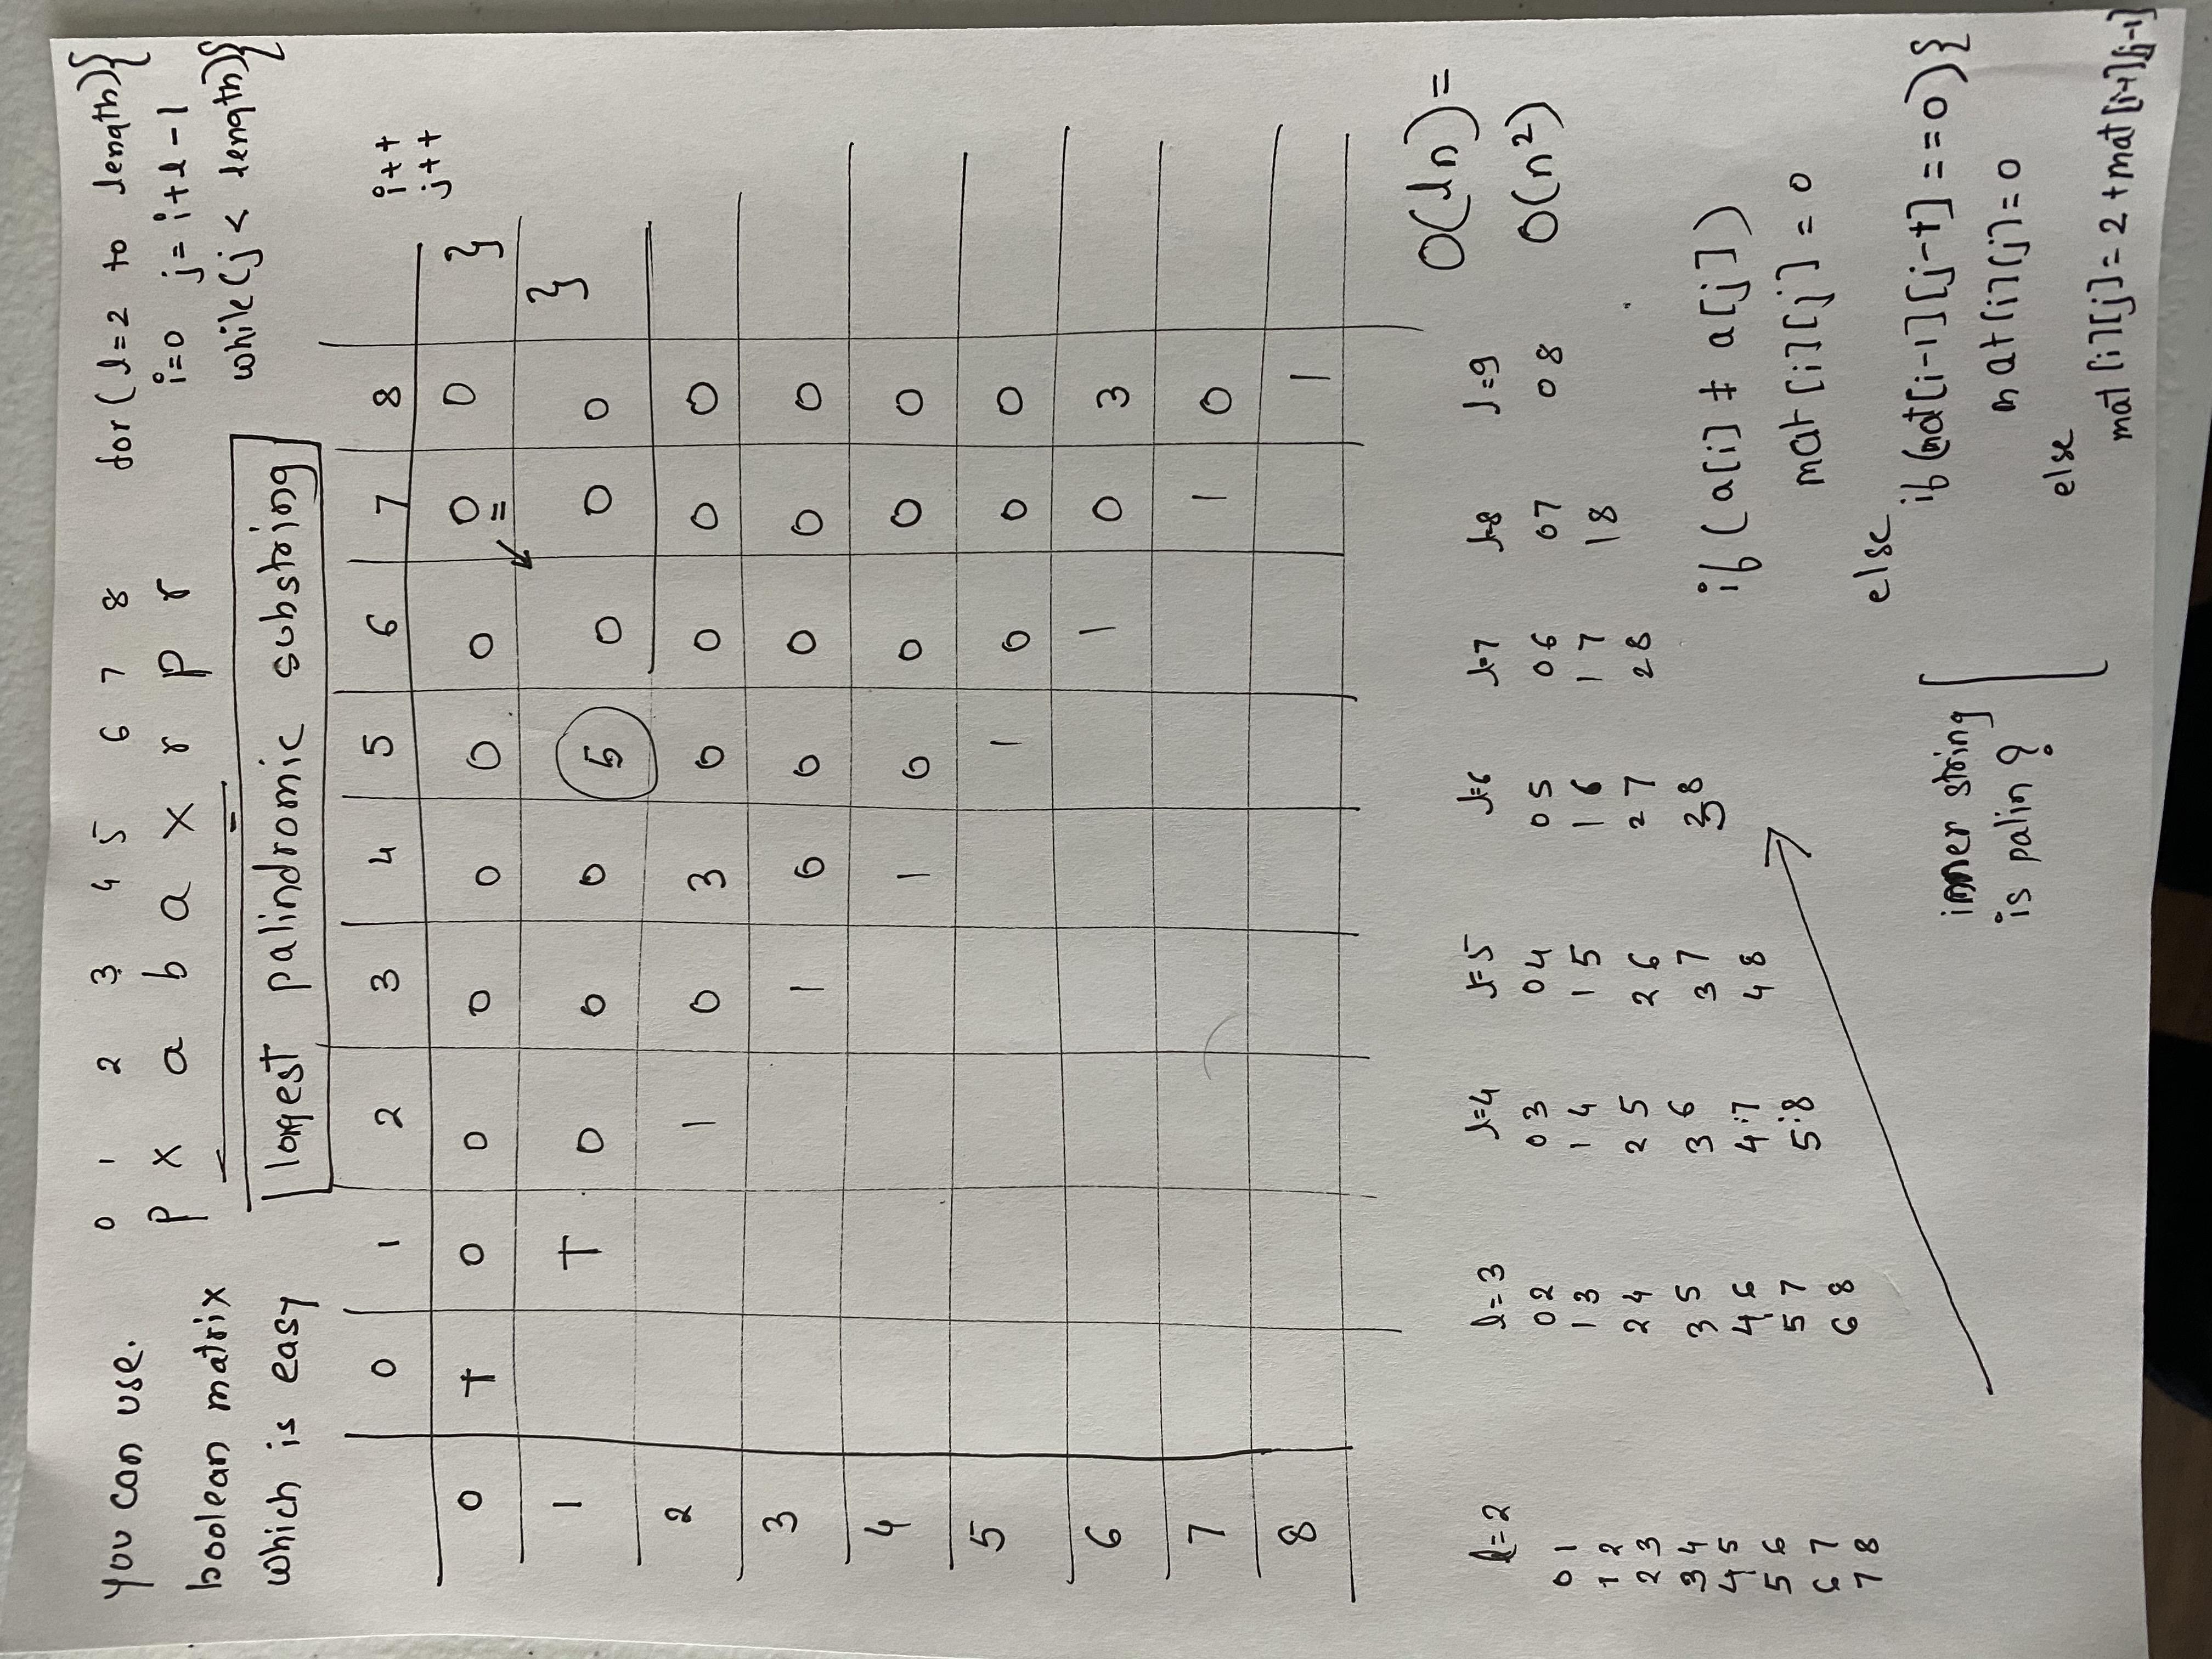 you can use.
boolean matrix
which is easy
0 1 2 3 4 5 6 7 8
p x a b a x r p r
longest palindromic substring
for ( l=2 to length){
i=0 j= i+l-1
while(j < length){
i++
j++
}
}
0 1 2 3 4 5 6 7 8
0 T 0 0 0 0 0 0 0 0
1 T 0 0 0 5 0 0 0
2 1 0 3 0 0 0 0
3 1 0 0 0 0 0
4 1 0 0 0 0
5 1 0 0 0
6 1 0 3
7 1 0
8 1
O(ln)=
O(n²)
l=2
0 1
1 2
2 3
3 4
4 5
5 6
6 7
7 8
l=3
0 2
1 3
2 4
3 5
4 6
5 7
6 8
l=4
0 3
1 4
2 5
3 6
4 7
5 8
l=5
0 4
1 5
2 6
3 7
4 8
l=6
0 5
1 6
2 7
3 8
l=7
0 6
1 7
2 8
l=8
0 7
1 8
l=9
0 8
if (a[i] ≠ a[j])
mat[i][j] = 0
else
if (mat[i-1][j-1] ==0){
mat[i][j]=0
else
mat[i][j]= 2 +mat[i+1][j-1]
inner string
is palin ?